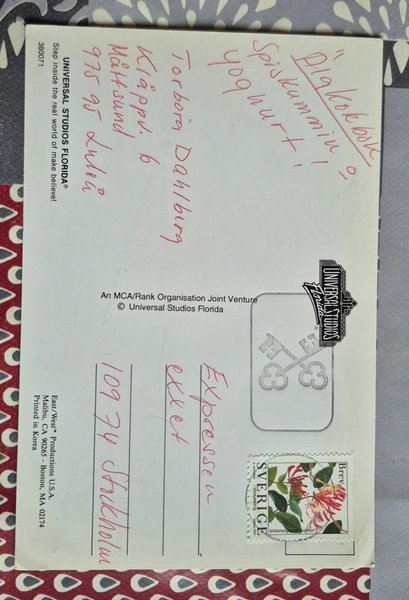 Spiskummin!
yoghurt!
Torborg Dahlberg
Kläppv. 6
Måttsund
975 95 Luleå
UNIVERSAL STUDIOS FLORIDA®
Step inside the real world of make believe!
380071
UNIVERSAL STUDIOS
Florida
®
An MCA/Rank Organisation Joint Venture
© Universal Studios Florida
Brev
SVERIGE
Expressen
109 74 Stockholm
East/West™ Productions U.S.A.
Malibu, CA 90265 - Boston, MA 02174
Printed in Korea